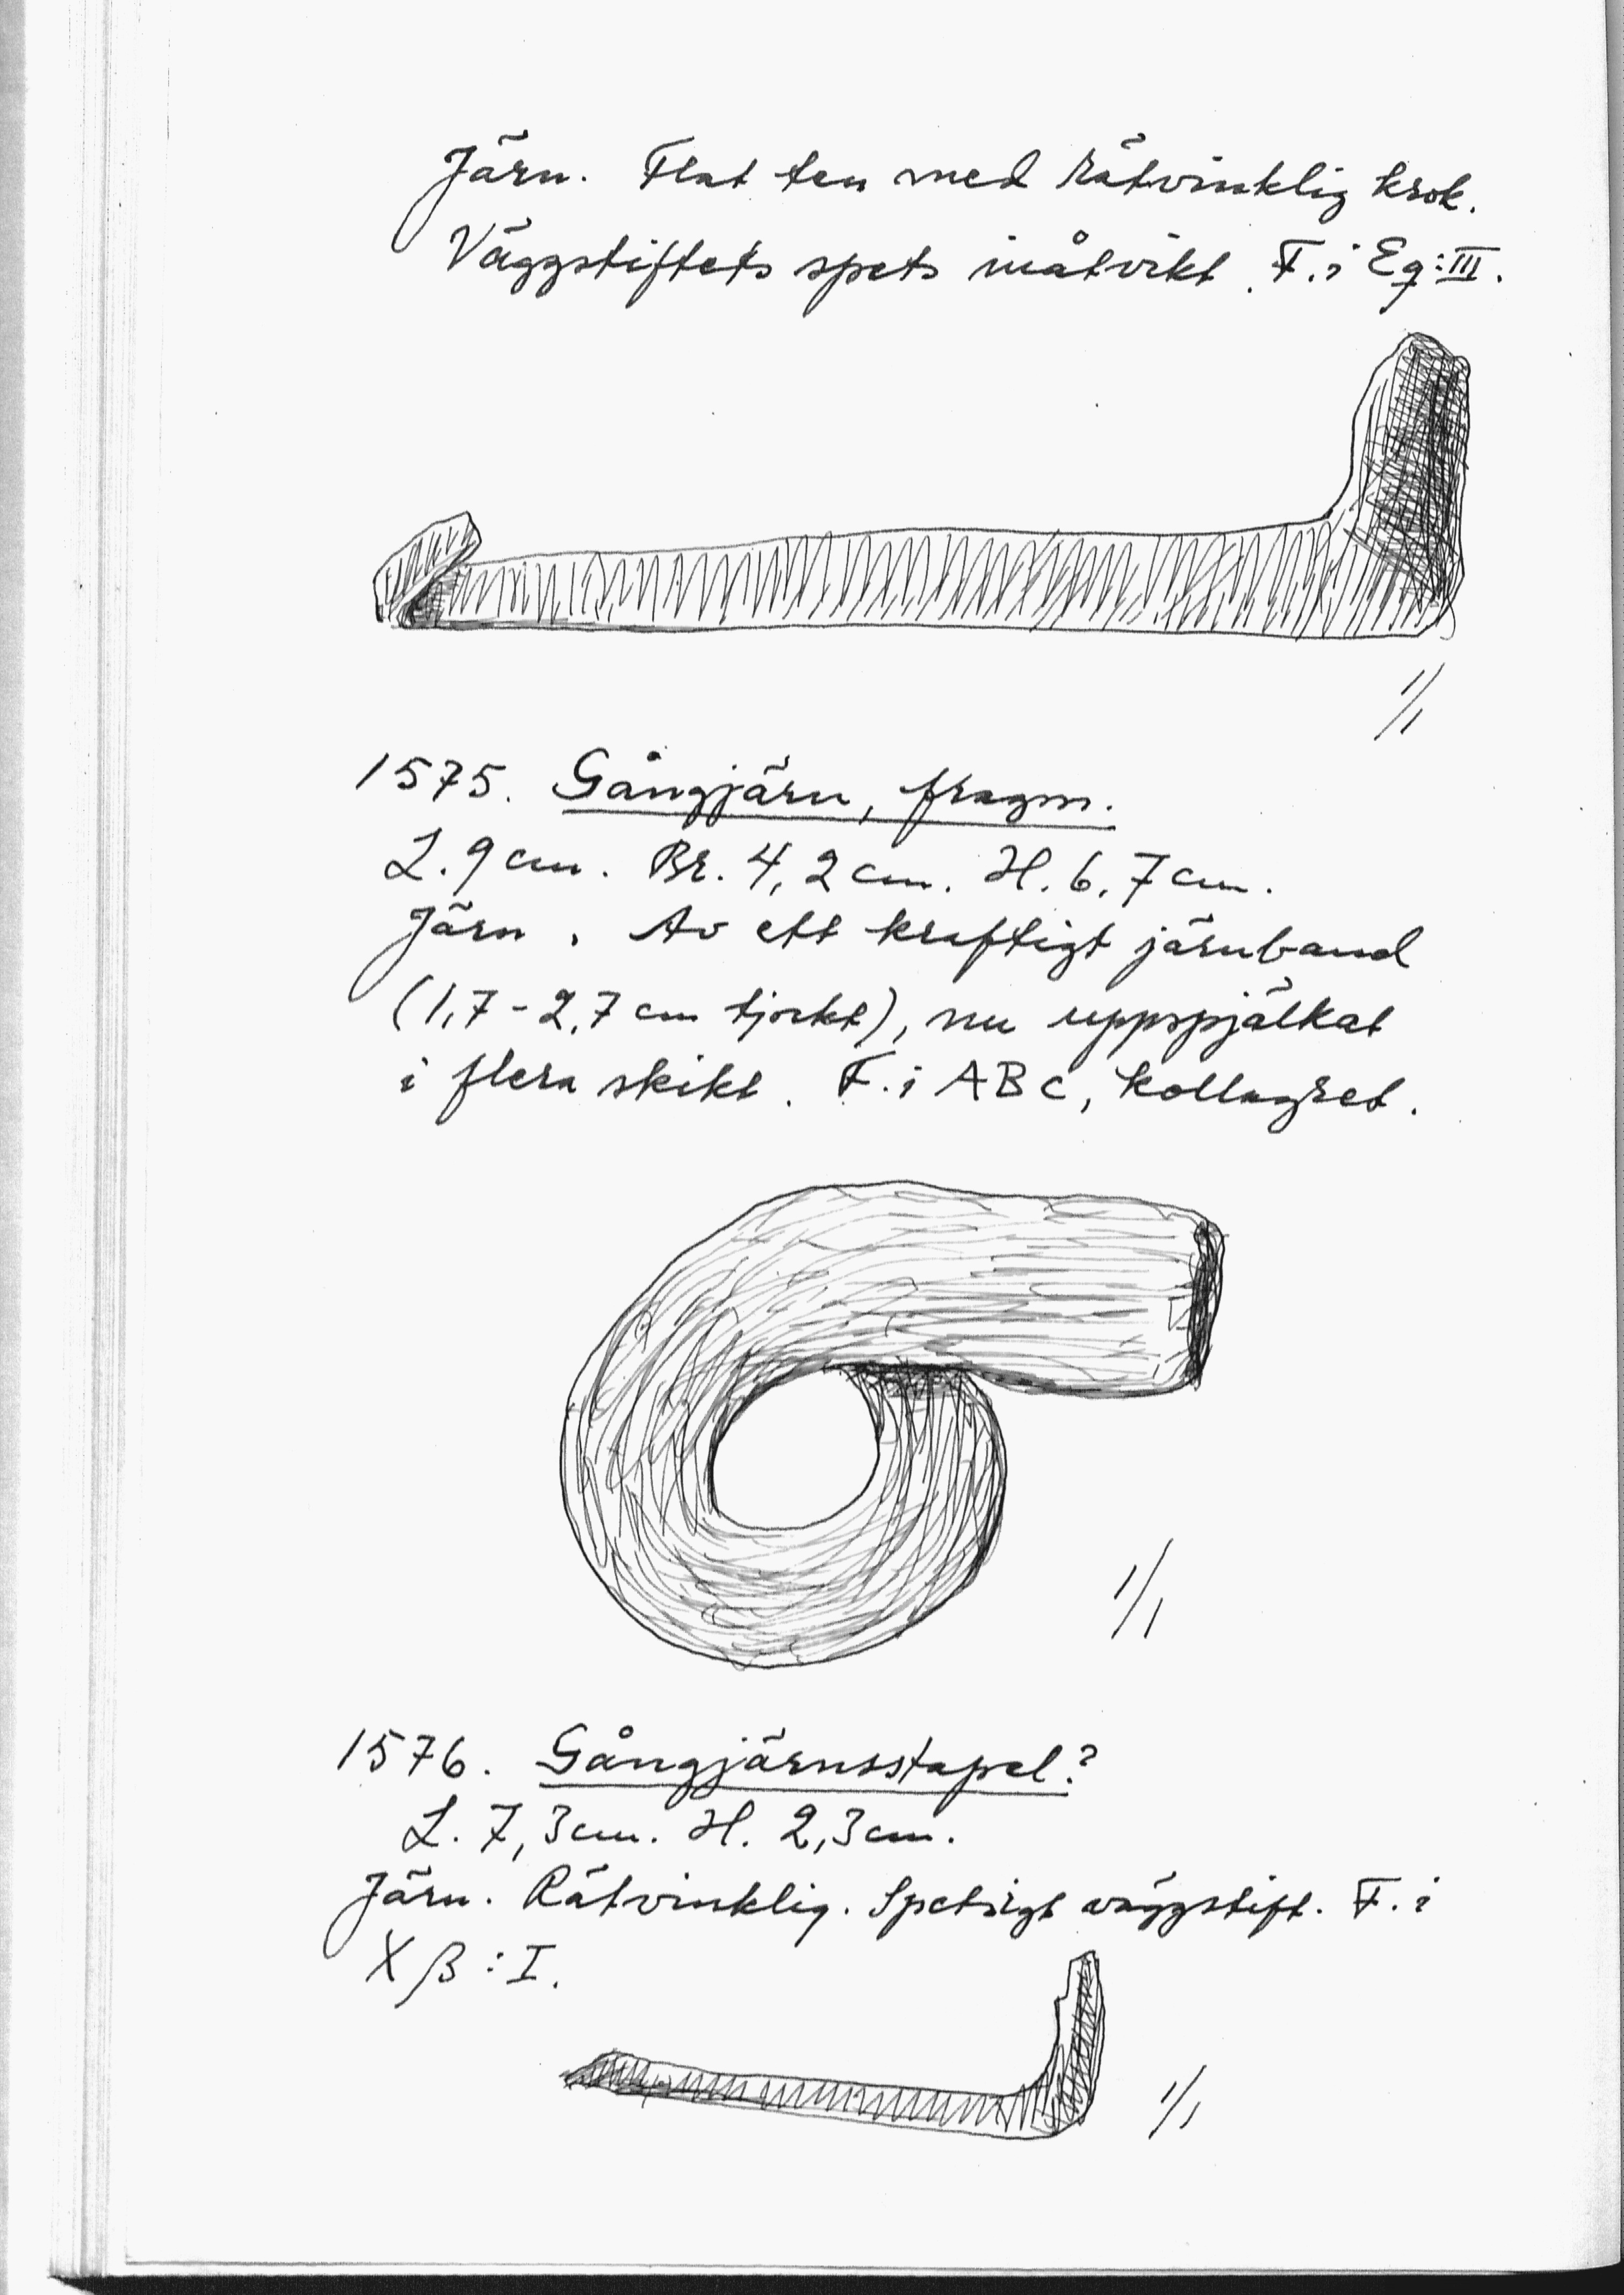 Järn. Flat ten med rätvinklig krok.
Väggstiftets spets inåtvikt. F. i Eq:III.
1/1
1575. Gångjärn, fragm.
L. 9 cm. Br. 4,2 cm. H. 6,7 cm.
Järn. Av ett kraftigt järnband
(1,7-2,7 cm tjockt), nu uppspjälkat
i flera skikt. F. i ABC, kollagret.
1/1
1576. Gångjärnsstapel?
L. 7,3 cm. H. 2,3 cm.
Järn. Rätvinklig. Spetsigt väggstift. F. i
Xβ:I.
1/1